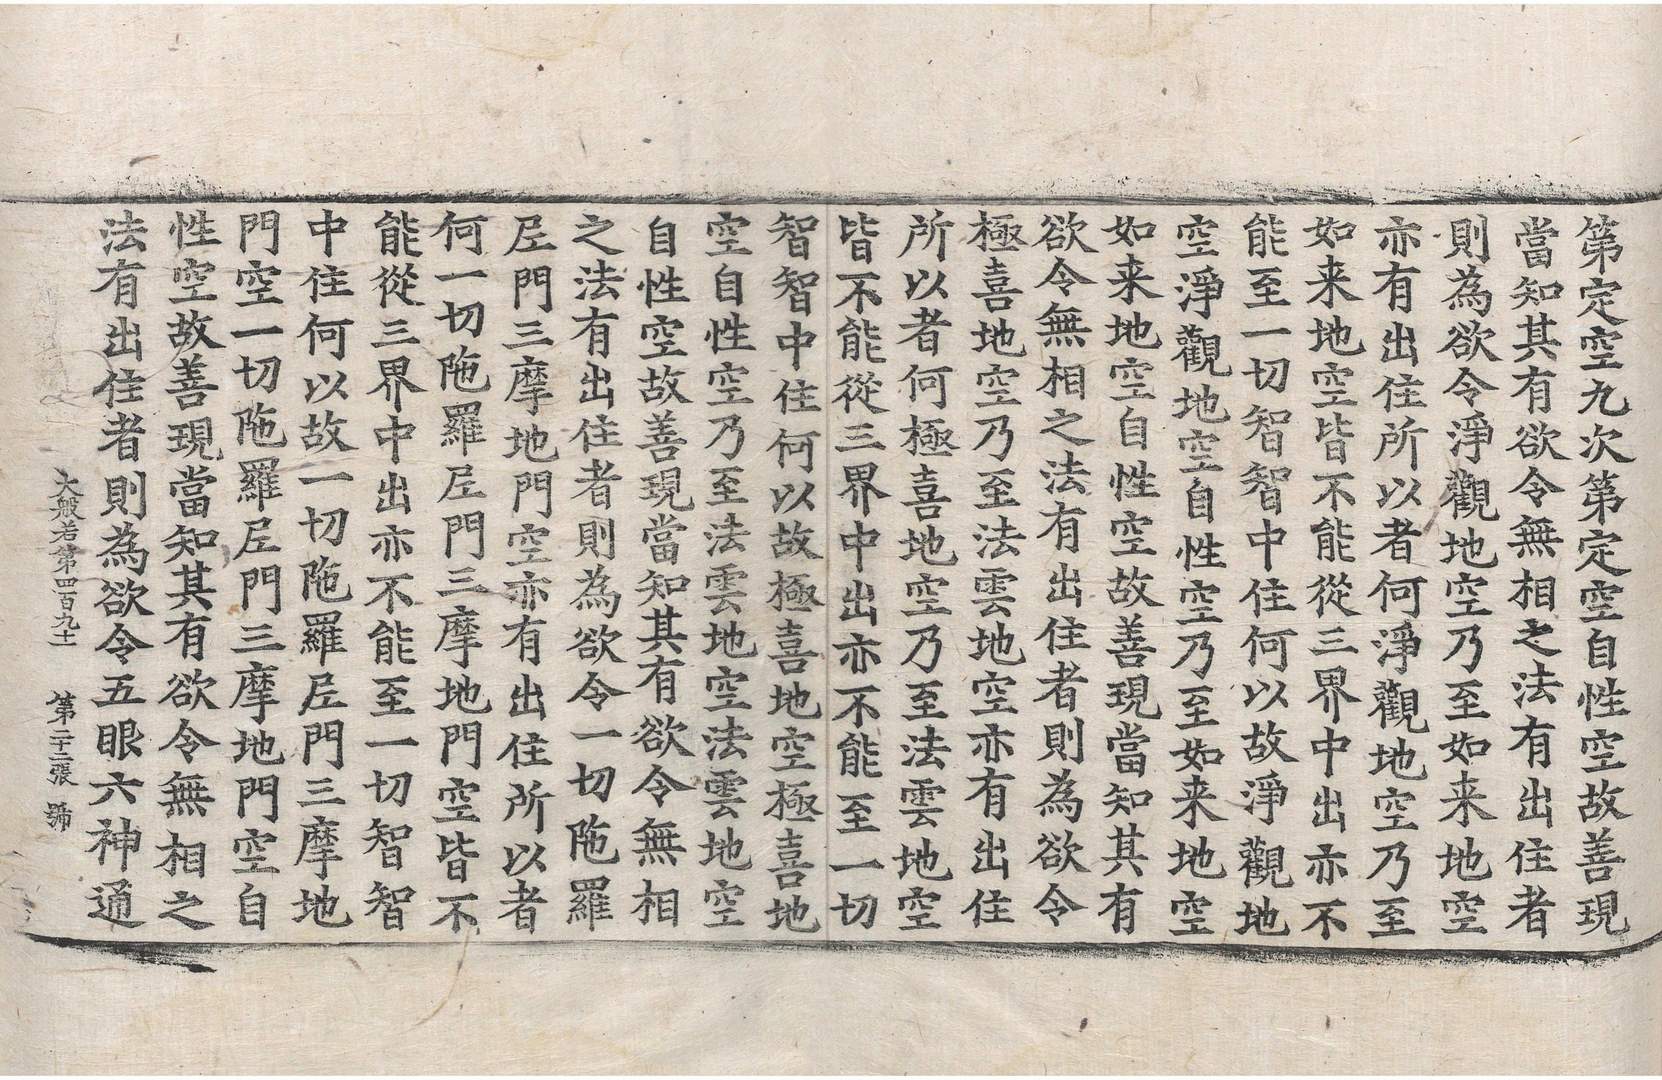 第定空九次第定空自性空故善現
當知其有欲令無相之法有出住者
則為欲令淨觀地空乃至如来地空
亦有出住所以者何淨觀地空乃至
如来地空皆不能從三界中出亦不
能至一切智智中住何以故淨觀地
空淨觀地空自性空乃至如来地空
如来地空自性空故善現當知其有
欲令無相之法有出住者則為欲令
極喜地空乃至法雲地空亦有出住
所以者何極喜地空乃至法雲地空
皆不能從三界中出亦不能至一切
智智中住何以故極喜地空極喜地
空自性空乃至法雲地空法雲地空
自性空故善現當知其有欲令無相
之法有出住者則為欲令一切陁羅
𡰱門三摩地門空亦有出住所以者
何一切陁羅𡰱門三摩地門空皆不
能從三界中出亦不能至一切智智
中住何以故一切陁羅𡰱門三摩地
門空一切陁羅𡰱門三摩地門空自
性空故善現當知其有欲令無相之
法有出住者則為欲令五眼六神通
大般若第四百九十　第二十二張　號